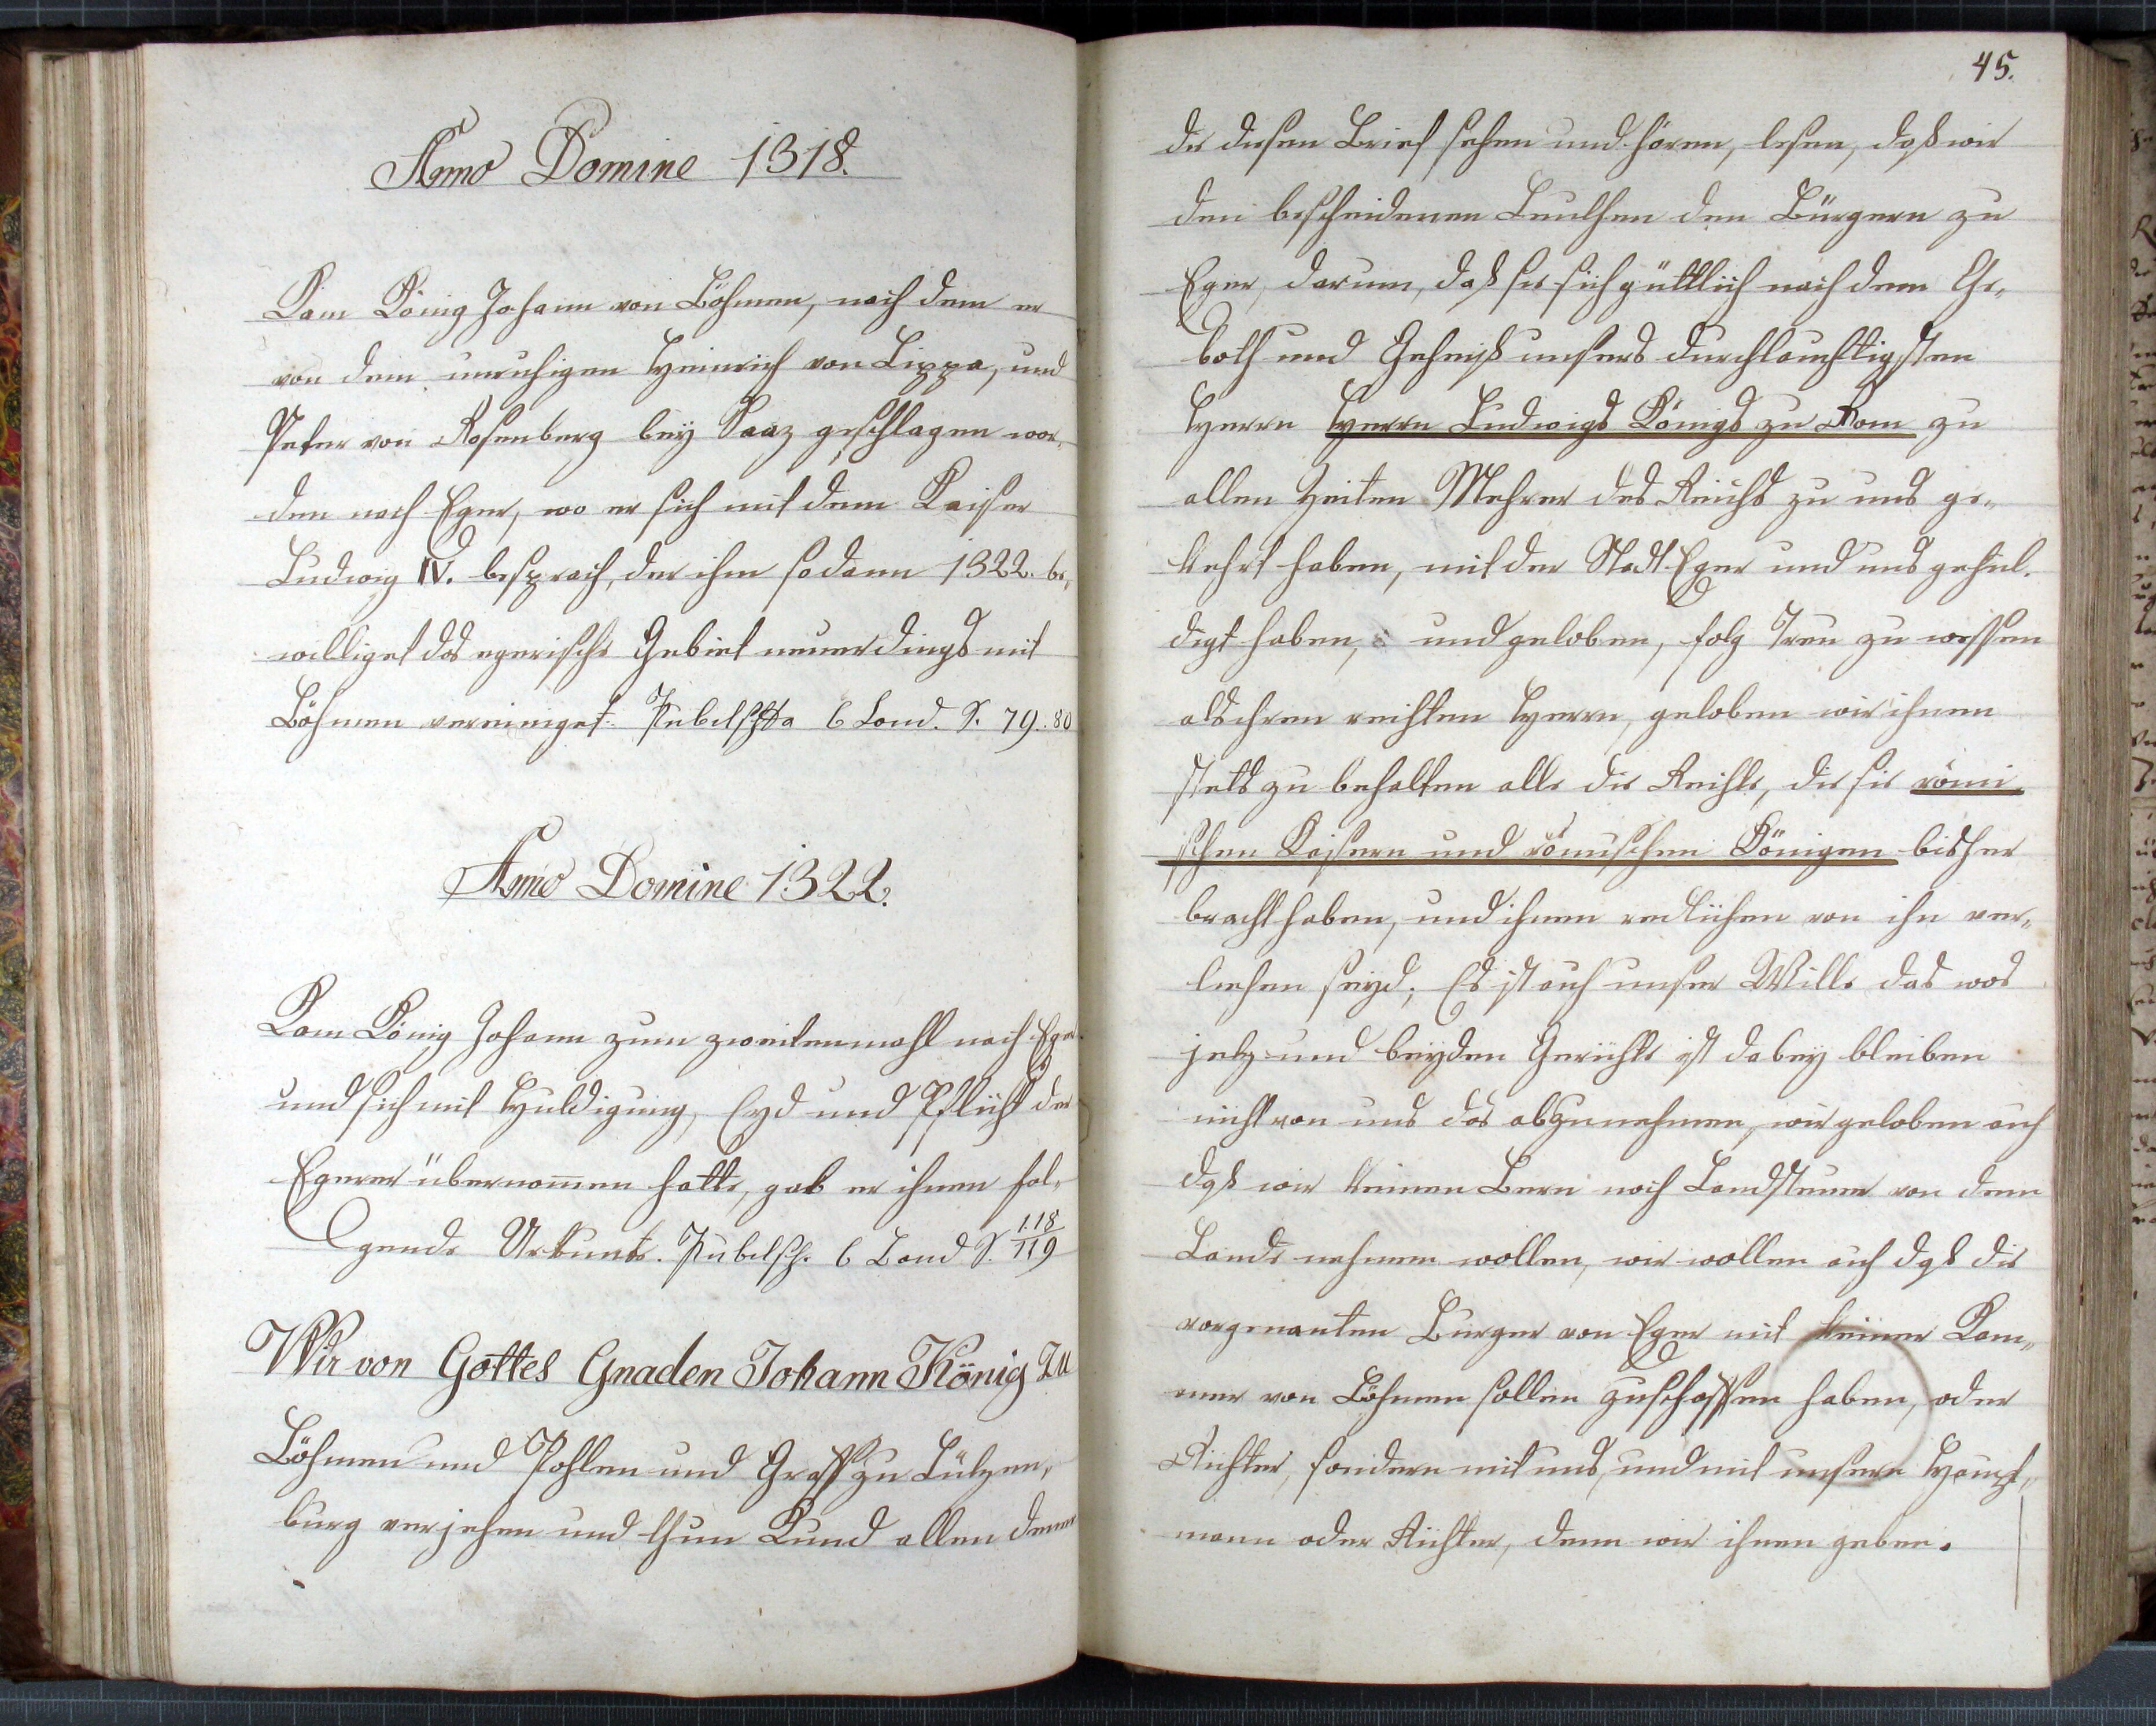 Anno Domine 1318.
Kam König Johann von Böhmen, nach dem er
von dem unruhigen Heinrich von Lippa, und
Peter von Rosenberg bey Saaz geschlagen wor„
den nach Eger, wo er sich mit dem Kaiser
Ludwig IV. besprach, der ihm sodann 1322. be„
williget das egerische Gebiet neuerdings mit
Böhmen vereiniget. 6 Band. S. 79.80
Anno Domine 1322.
Kam König Johann zum zweitenmahl nach Eger
und sich mit Huldigung, Eyd und Pflicht der
Egerer übernom̄en hatte, gab er ihnen fol„
gende Urkunde. Pubelsch. 6 Band S. 118/119
Wir von Gottes Gnaden Johann König Zu
Böhmen und Pohlen und Graff zu Lützen„
burg verjehen und thun Kund allen denen
45.
die diesen Brief sehen und hören, lesen, daß wir
den bescheidenen Leuthen den Bürgern zu
Eger, darum, daß sie sich güttlich nach dem Ge„
both und Geheiß unsers durchlauchtigsten
Herrn Herrn Ludwigs Königs zu Rom zu
allen Zeiten Mehrer des Reichs zu uns ge„
kehrt haben, mit der Stadt Eger und uns gehul.
digt haben, und geloben, folg Treu zu
als ihren rechten Herrn, geloben wir ihnen
stets zu behalten alle die Rechte, die sie römi„
schen Kaisern und römischen Königen bisher
bracht haben, und ihnen redlichen von ihn ver„
liehen seyd; Es ist auch unser Wille das was
jetz und beyden Gerichte ist dabey bleiben
nicht von uns das abzunehmen, wir geloben auch
daß wir keinen Bern noch Landsteuer von dem
Lande nehmen wollen, wir wollen auch daß die
vorgenanten Burger von Eger mit keiner Kam„
mer von Böhmen sollen zuschaffen haben, oder
Richter, sondern mit uns, und mit unsern Haupt„
mann oder Richter, denn wir ihnen geben.